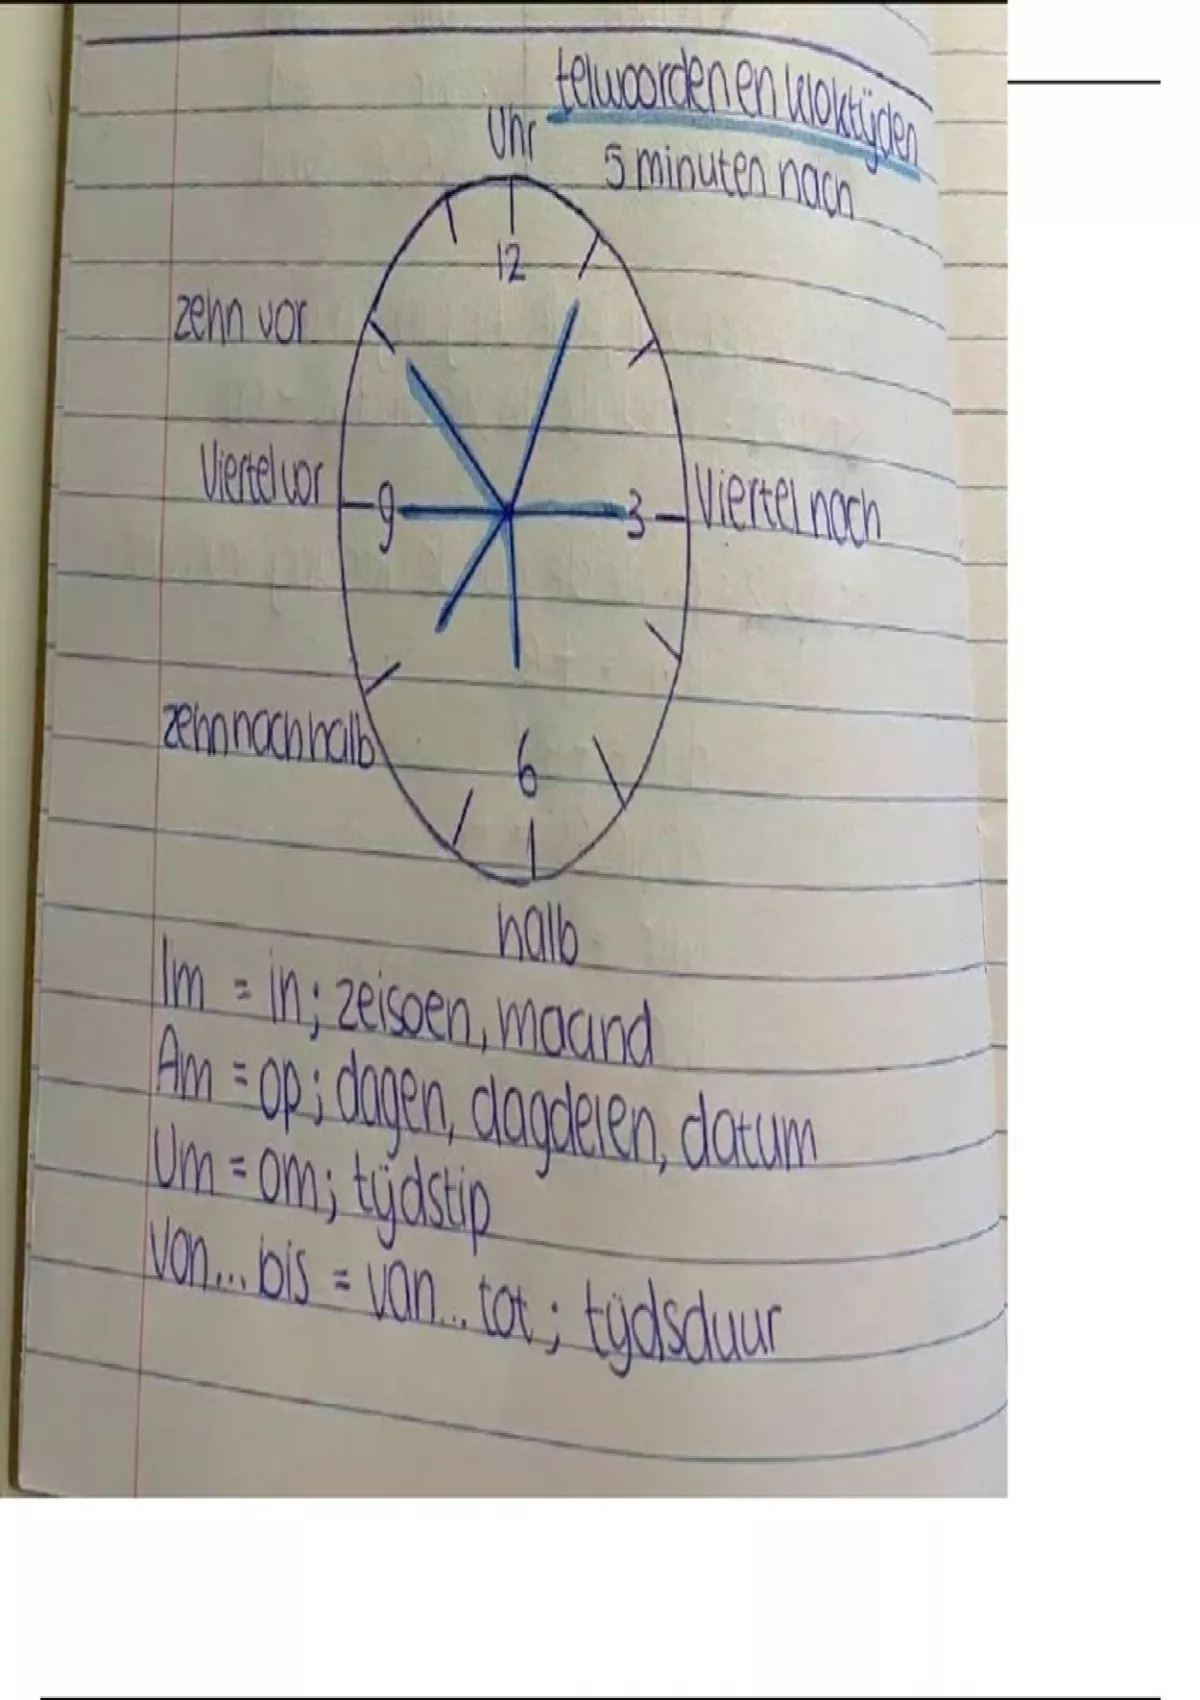 telwoorden en kloktijden
Uhr
5 minuten nach
12
zehn vor
Viertel vor
9
3
Viertel nach
zehn nach halb
6
halb
Im = in; zeisoen, maand
Am = op; dagen, dagdelen, datum
Um = om; tijdstip
Von... bis = van... tot ; tijdsduur